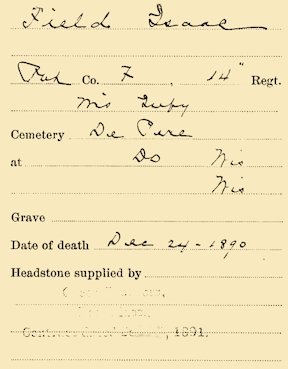 Field Isaac
Co. F, 14" Regt.
Wis Infy
Cemetery De Pere
at Do Wis
Wis
Grave
Date of death Dec 24 - 1890
Headstone supplied by
1891.